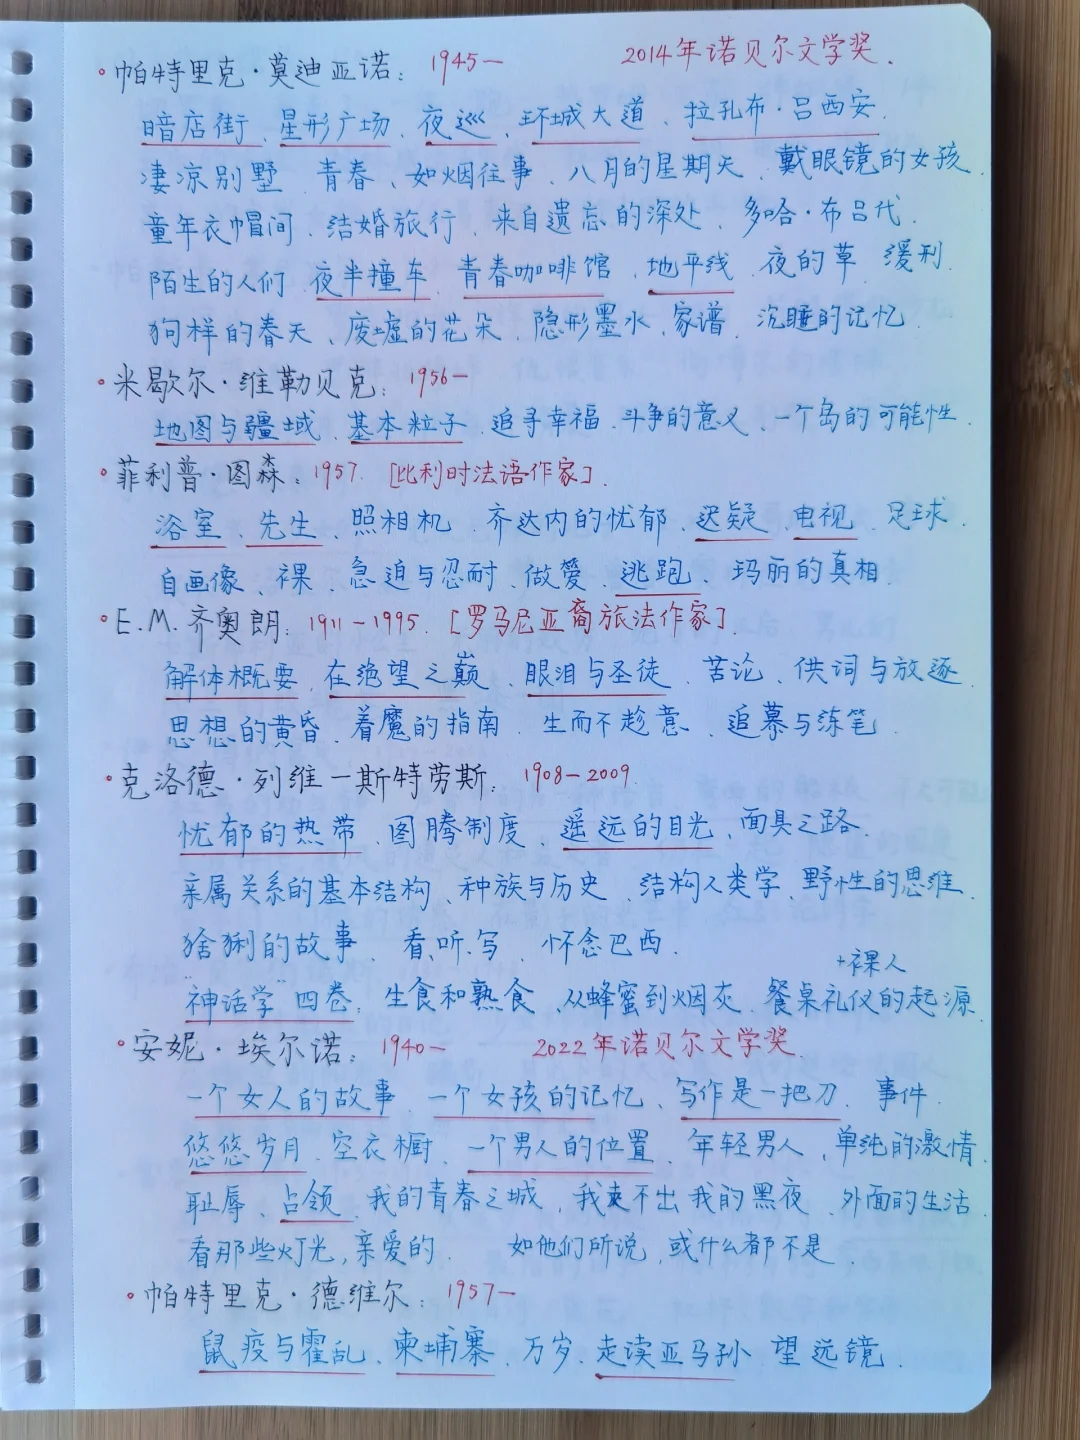 ·帕特里克·莫迪亚诺: 1945— 2014年诺贝尔文学奖.
暗店街、星形广场、夜巡、环城大道、拉孔布·吕西安.
凄凉别墅、青春、如烟往事、八月的星期天、戴眼镜的女孩.
童年衣帽间、结婚旅行、来自遗忘的深处、多哈·布吕代.
陌生的人们、夜半撞车、青春咖啡馆、地平线、夜的草 缓刑.
狗样的春天、废墟的花朵、隐形墨水、家谱、沉睡的记忆.
·米歇尔·维勒贝克: 1956—
地图与疆域、基本粒子、追寻幸福、斗争的意义、一个岛的可能性.
·菲利普·图森: 1957. [比利时法语作家].
浴室、先生、照相机、齐达内的忧郁、迟疑、电视、足球.
自画像、裸、急迫与忍耐、做爱、逃跑、玛丽的真相.
·E.M.齐奥朗: 1911—1995. [罗马尼亚裔旅法作家].
解体概要、在绝望之巅、眼泪与圣徒、苦论、供词与放逐.
思想的黄昏、着魔的指南、生而不趁意、追慕与练笔.
·克洛德·列维—斯特劳斯: 1908—2009.
忧郁的热带、图腾制度、遥远的目光、面具之路.
亲属关系的基本结构、种族与历史、结构人类学、野性的思维.
猞猁的故事、看.听.写、怀念巴西.
+裸人
"神话学"四卷: 生食和熟食、从蜂蜜到烟灰、餐桌礼仪的起源.
·安妮·埃尔诺: 1940— 2022年诺贝尔文学奖
一个女人的故事、一个女孩的记忆、写作是一把刀、事件.
悠悠岁月、空衣橱、一个男人的位置、年轻男人、单纯的激情.
耻辱、占领、我的青春之城、我走不出我的黑夜、外面的生活.
看那些灯光,亲爱的. 如他们所说,或什么都不是.
·帕特里克·德维尔: 1957—
鼠疫与霍乱、柬埔寨、万岁、走读亚马孙 望远镜.